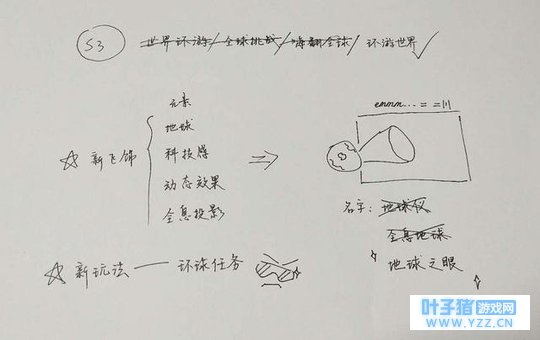 S3 世界环游/全球挑战/嗨翻全球/环游世界✓
元素
地球
☆新飞饰 科技感 ⇒
动态效果
全息投影
emmm...==|||
名字：地球仪
全息地球
地球之眼
☆新玩法——环球任务
叶子猪游戏网
WWW.YZZ.CN